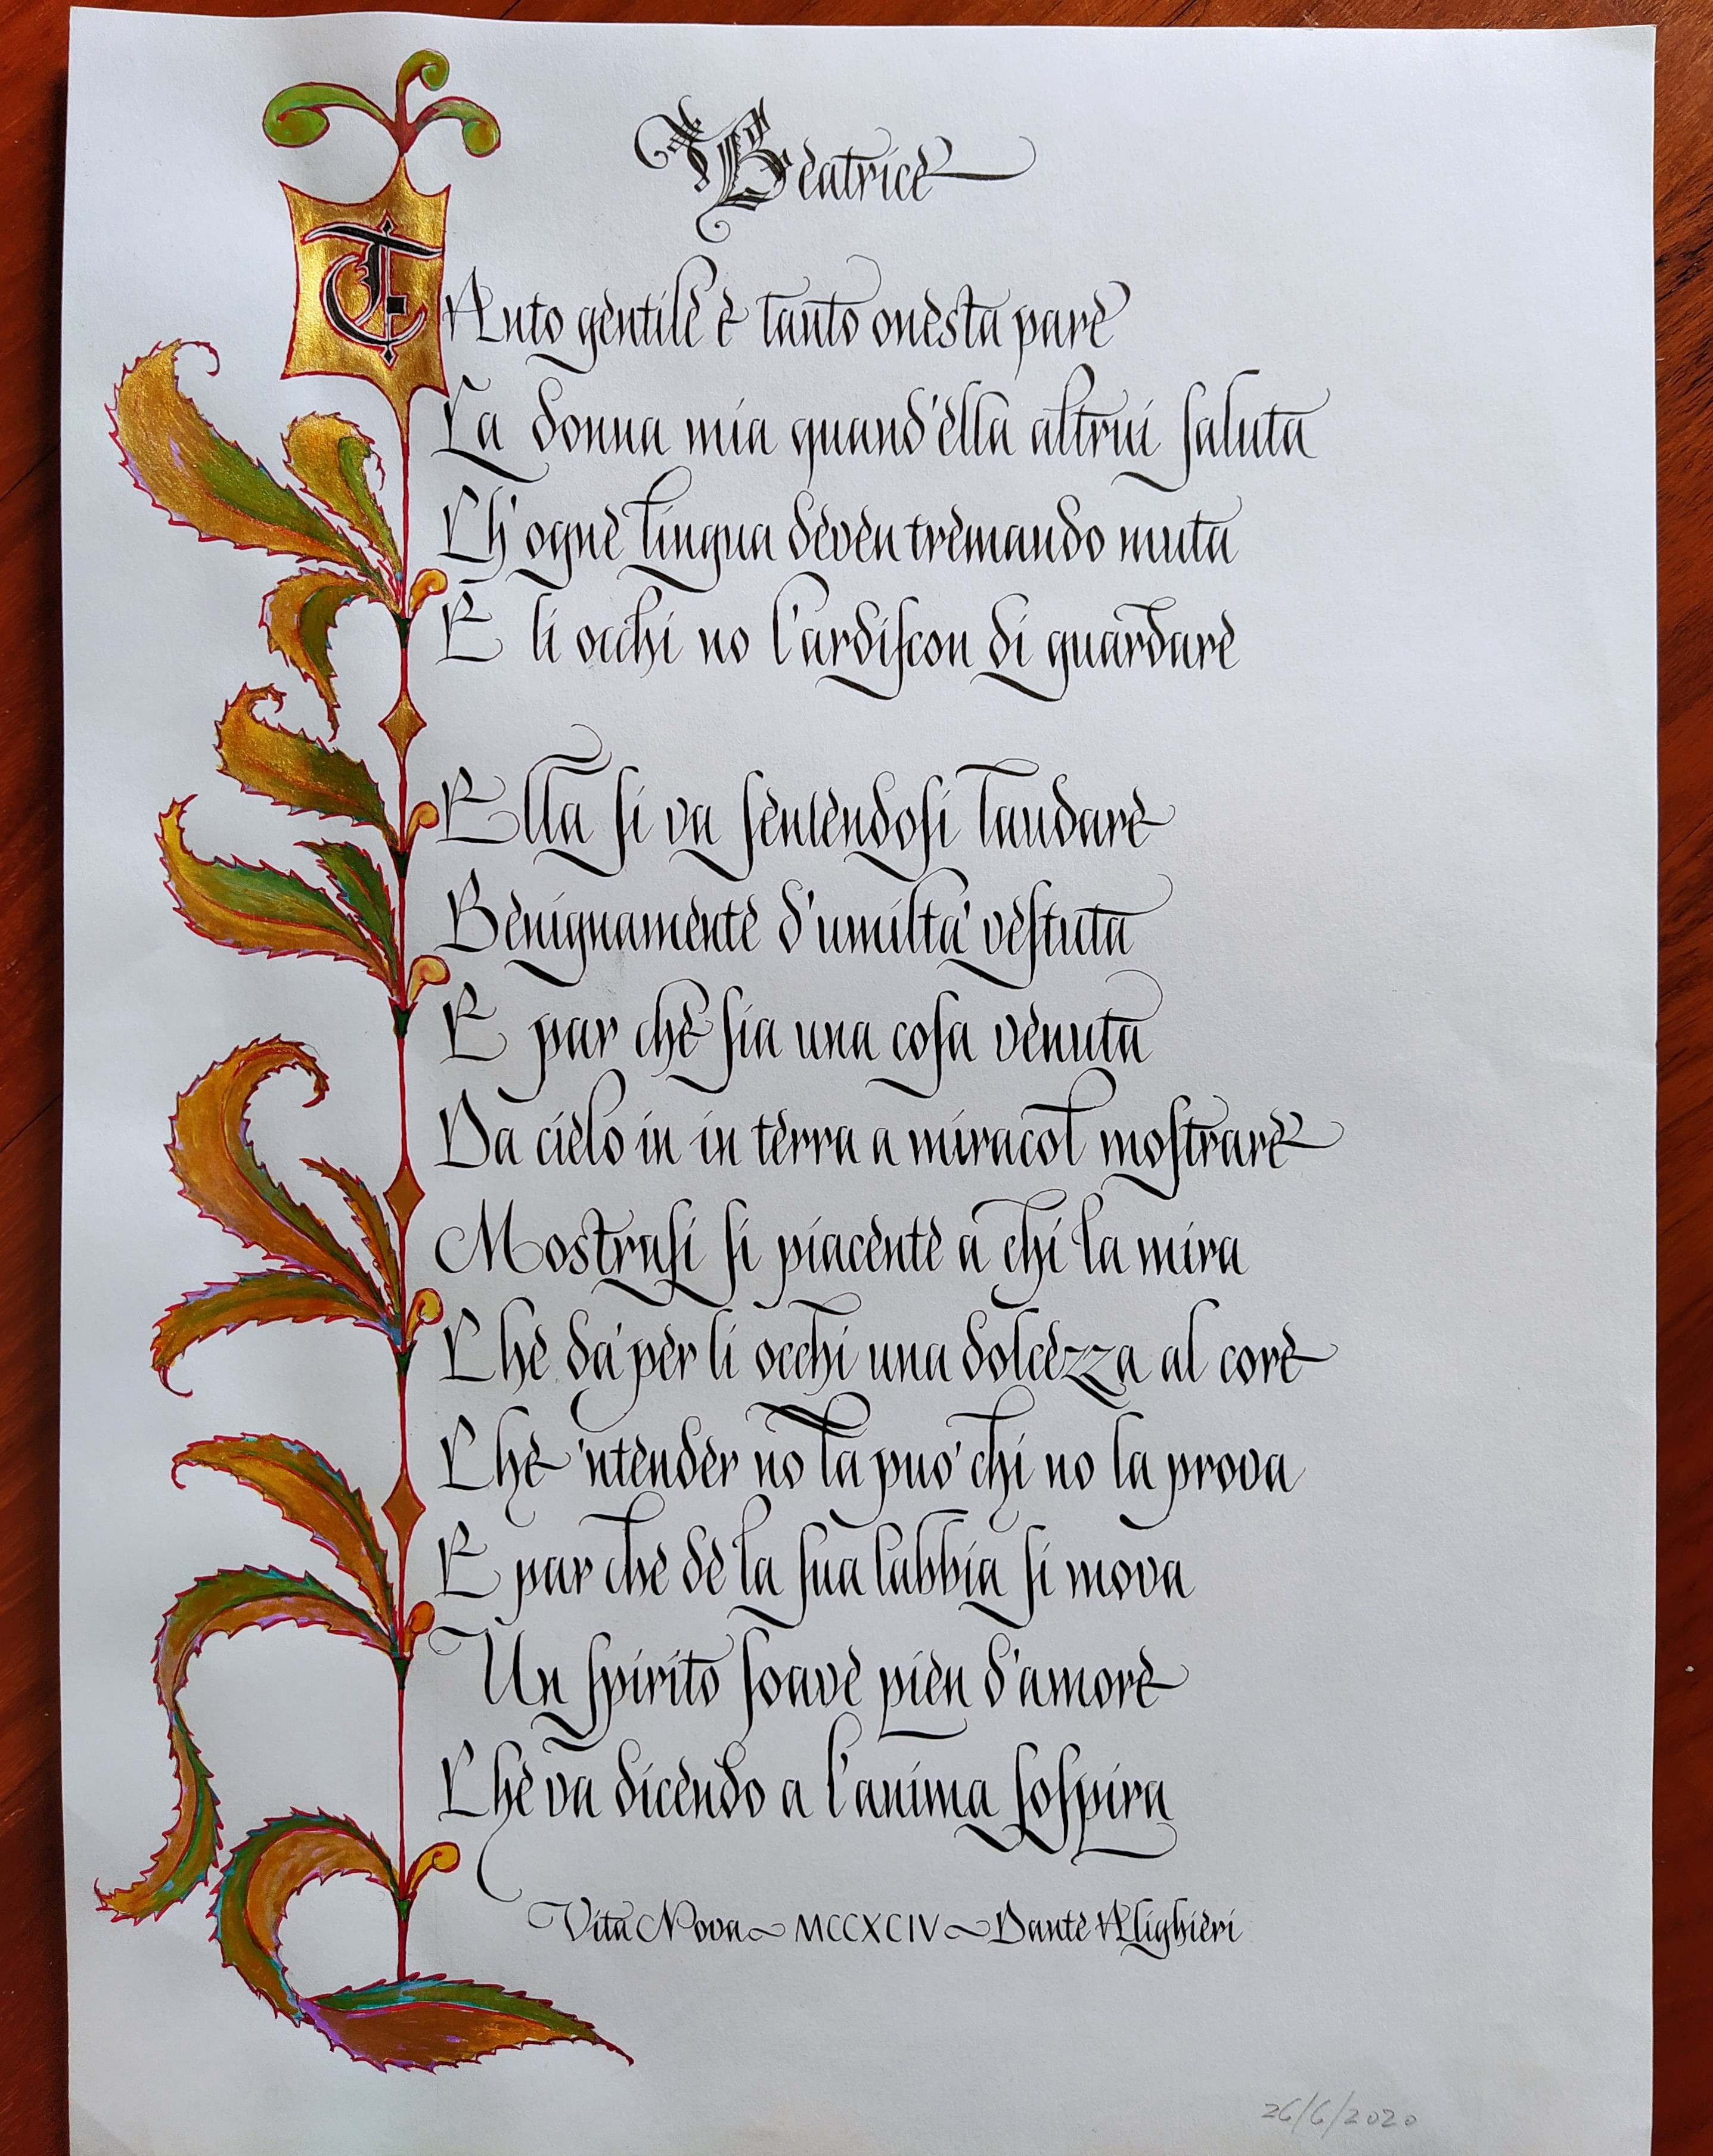 Beatrice
TAnto gentile e tanto onesta pare
La donna mia quand'ella altrui saluta
Ch'ogne lingua deven tremando muta
E li occhi no l'ardiscon di guardare
Ella si va sentendosi laudare
Benignamente d'umilta' vestuta
E par che sia una cosa venuta
Da cielo in in terra a miracol mostrare
Mostrasi si piacente a chi la mira
Che da' per li occhi una dolcezza al core
Che 'ntender no la puo' chi no la prova
E par che de la sua labbia si mova
Un spirito soave pien d'amore
Che va dicendo a l'anima sospira
Vita Nova ~ MCCXCIV ~ Dante Alighieri
26/6/2020